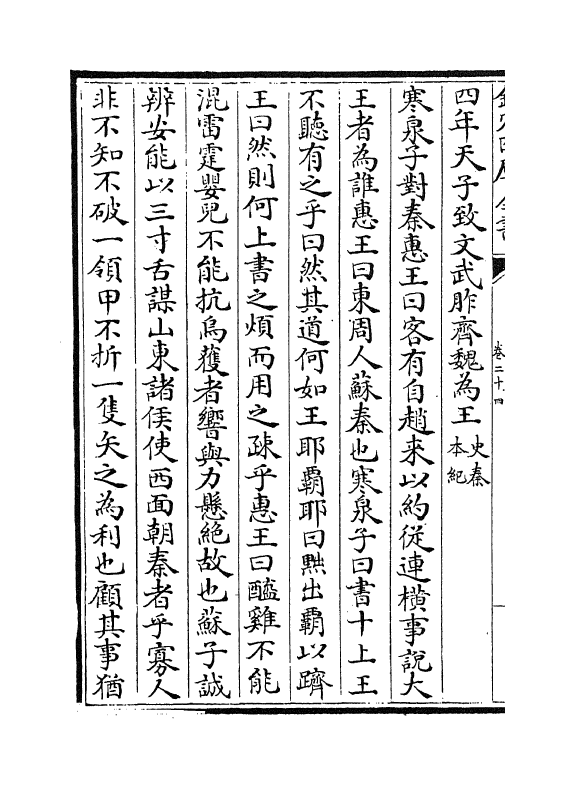 欽定四庫全書
卷二十四
四年天子致文武胙齊魏為王史秦本紀
寒泉子對秦惠王曰客有自趙来以約從連橫事說大
王者為誰惠王曰東周人蘇秦也寒泉子曰書十上王
不聽有之乎曰然其道何如王耶覇耶曰黜出覇以躋
王曰然則何上書之煩而用之疎乎惠王曰醯雞不能
混雷霆嬰兒不能抗烏獲者響與力懸絕故也蘇子誠
辨安能以三寸舌謀山東諸侯使西面朝秦者乎寡人
非不知不破一領甲不折一隻矢之為利也顧其事猶